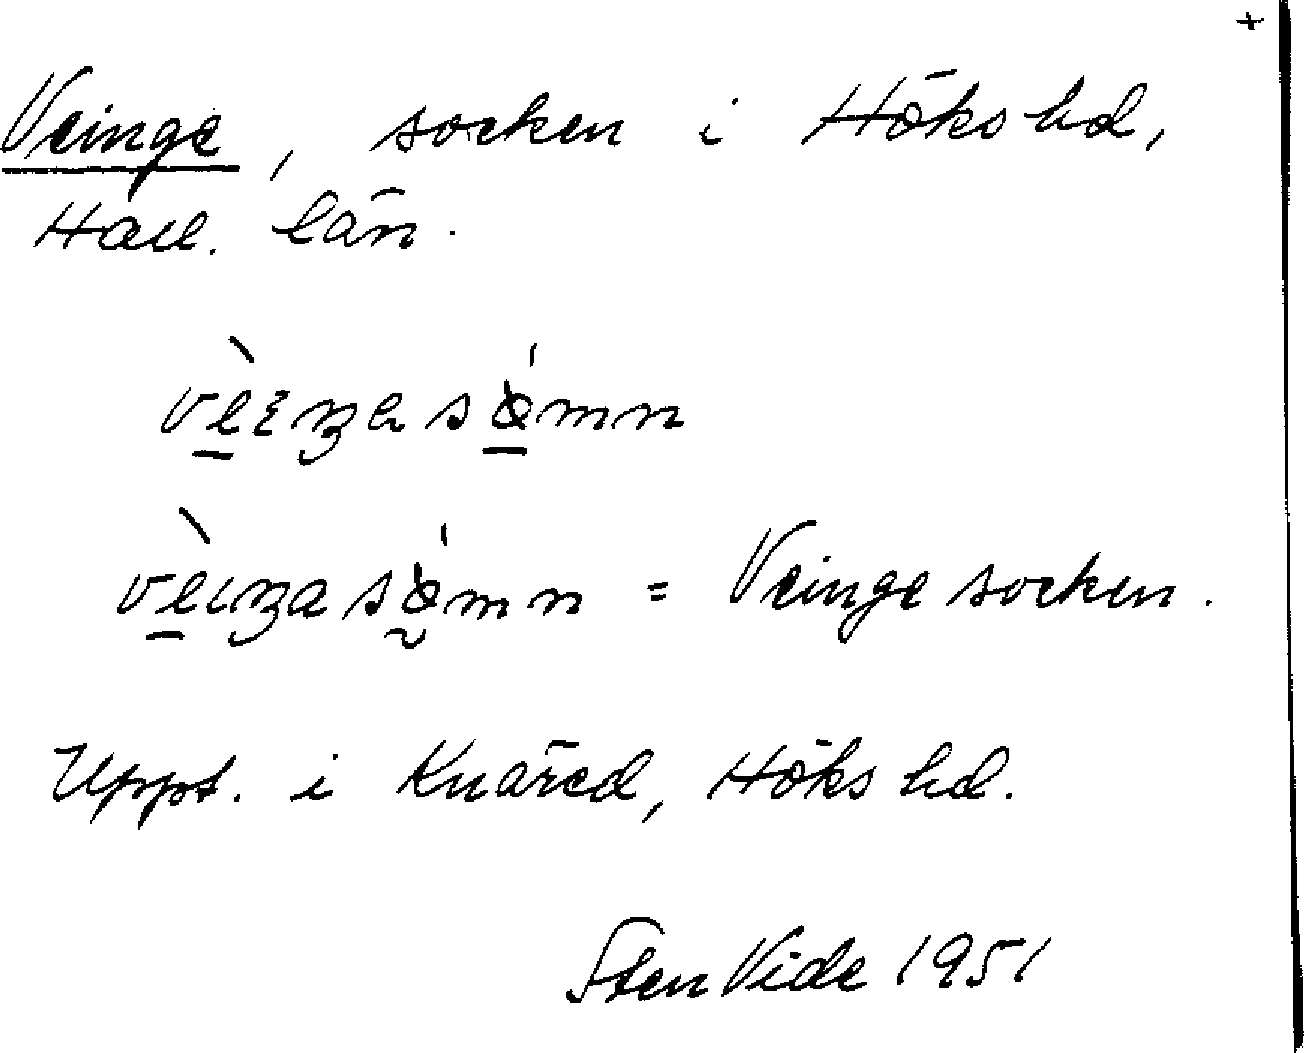 +
Veinge, socken i Höks hd,
Hall. län.
= Veinge socken.
Uppt. i Knäred, Höks hd.
Sten Vide 1951